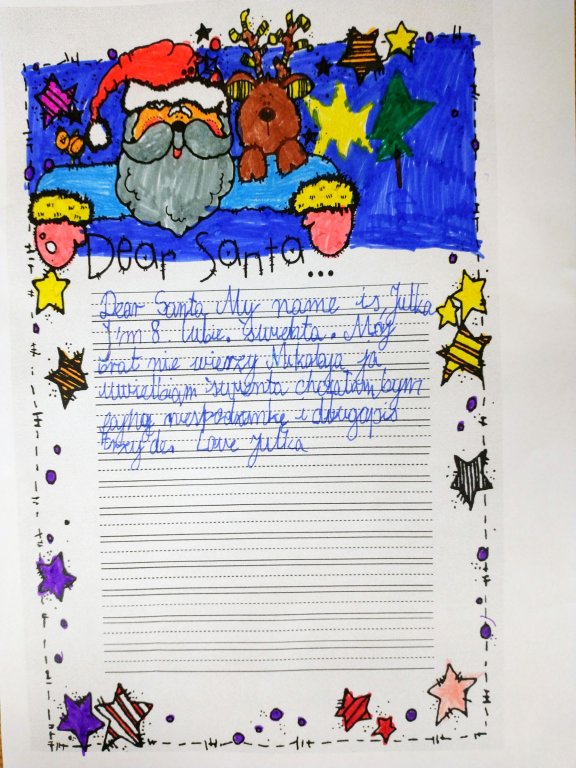 Dear Santa...
Dear Santa My name is Julka
I'm 8. lubie. święta. Mój
brat nie wierzy Mikołaja ja
uwielbiam święnta chciałam bym
fajną niespodzinkę i dougopis
Love Julka